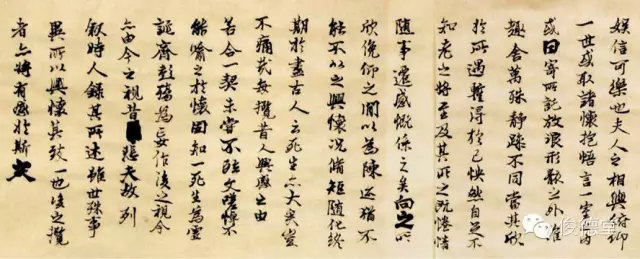 娛信可樂也夫人之相與俯仰
一世或取諸懷抱悟言一室之內
或因寄所託放浪形骸之外雖
趣舍萬殊靜躁不同當其欣
於所遇蹔得於己怏然自足不
知老之將至及其所之既惓情
隨事遷感慨係之矣向之所
欣俛仰之閒以為陳迹猶不
能不以之興懷況脩短隨化終
期於盡古人云死生亦大矣豈
不痛哉每攬昔人興感之由
若合一契未嘗不臨文嗟悼不
能喻之於懷固知一死生為虛
誕齊彭殤為妄作後之視今
亦由今之視昔悲夫故列
敘時人錄其所述雖世殊事
異所以興懷其致一也後之攬
者亦將有感於斯文
俊德堂